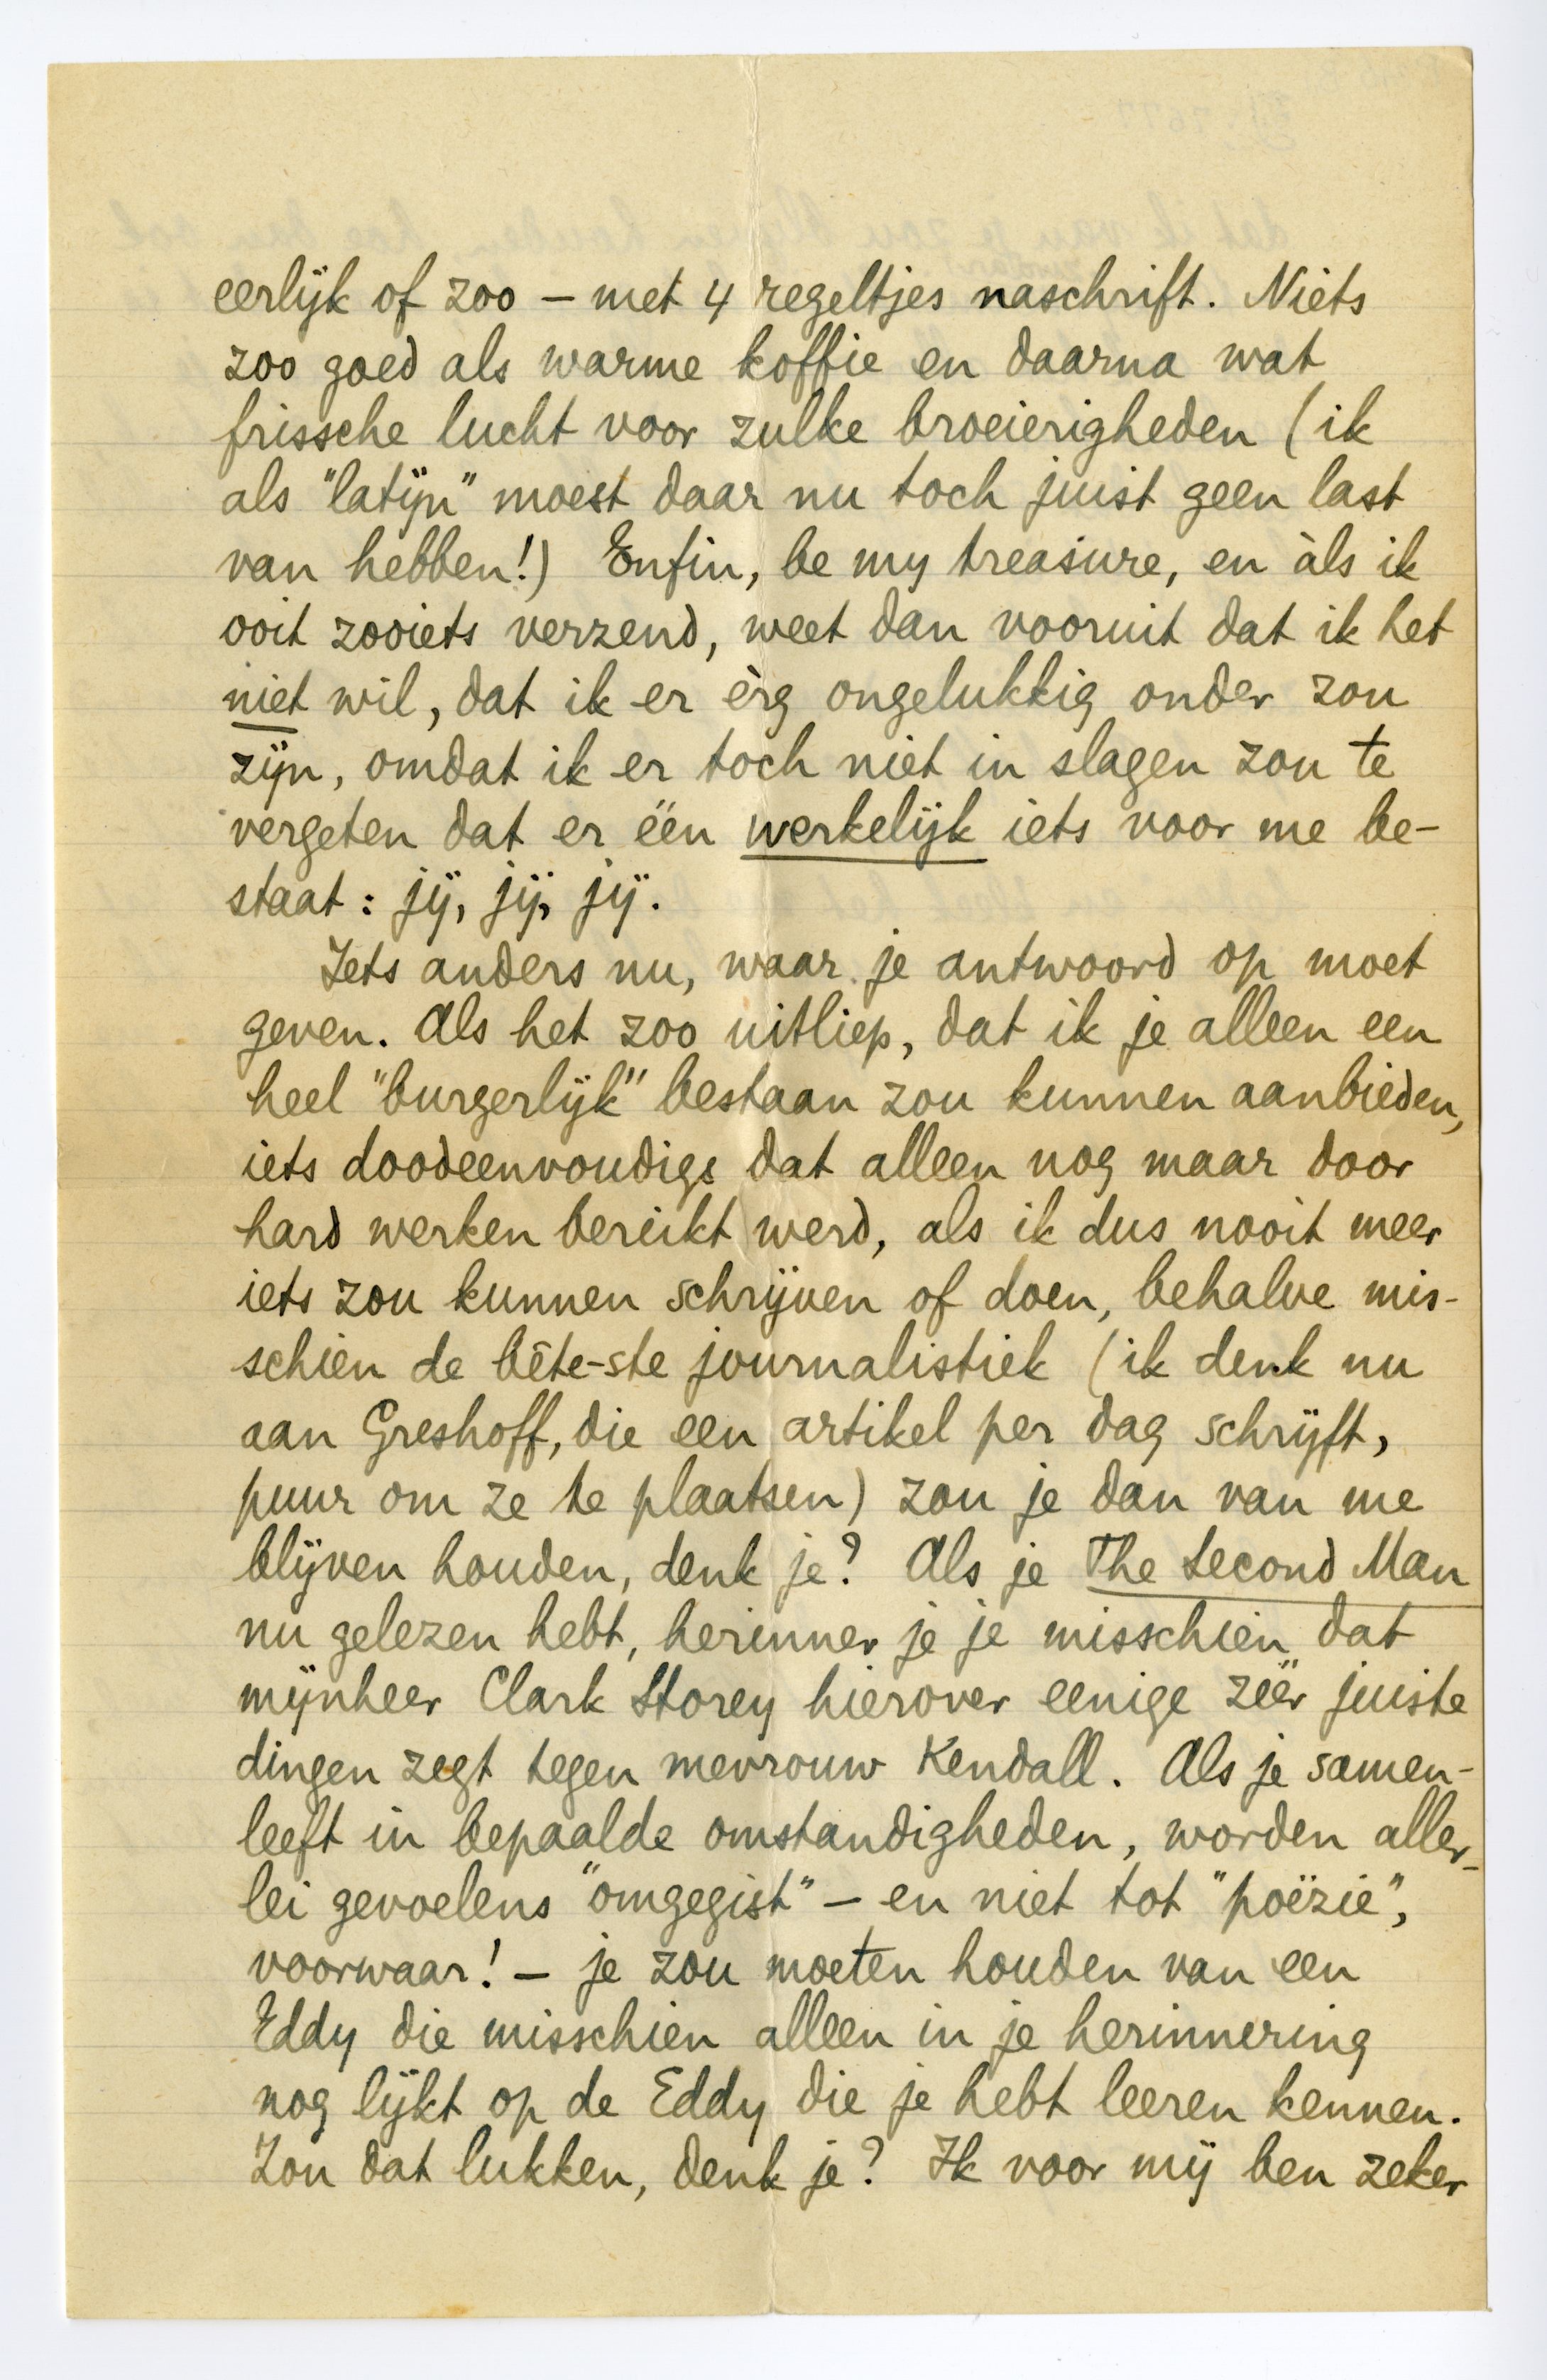 eerlijk of zoo – met 4 regeltjes naschrift. Niets
zoo goed als warme koffie en daarna wat
frissche lucht voor zulke broeierigheden (ik
als "latijn" moest daar nu toch juist geen last
van hebben!) Enfin, be my treasure, en àls ik
ooit zooiets verzend, weet dan vooruit dat ik het
niet wil, dat ik er èrg ongelukkig onder zou
zijn, omdat ik er toch niet in slagen zou te
vergeten dat er één werkelijk iets voor me be-
staat: jij, jij, jij.
Iets anders nu, waar je antwoord op moet
geven. Als het zoo uitliep, dat ik je alleen een
heel "burgerlijk" bestaan zou kunnen aanbieden,
iets doodeenvoudigs dat alleen nog maar door
hard werken bereikt werd, als ik dus nooit meer
iets zou kunnen schrijven of doen, behalve mis-
schien de bête-ste journalistiek (ik denk nu
aan Greshoff, die een artikel per dag schrijft,
puur om ze te plaatsen) zou je dan van me
blijven houden, denk je? Als je The Second Man
nu gelezen hebt, herinner je je misschien dat
mijnheer Clark Storey hierover eenige zéér juiste
dingen zegt tegen mevrouw Kendall. Als je samen-
leeft in bepaalde omstandigheden, worden aller-
lei gevoelens "omgegist" – en niet tot "poëzie",
voorwaar! – je zou moeten houden van een
Eddy die misschien alleen in je herinnering
nog lijkt op de Eddy die je hebt leeren kennen.
Zou dat lukken, denk je? Ik voor mij ben zeker